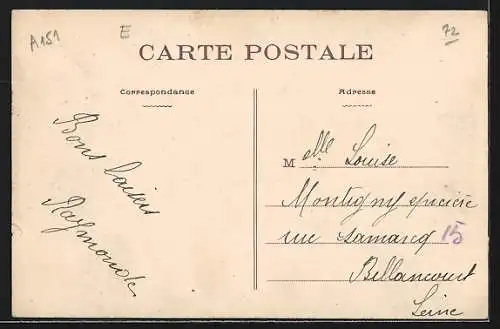 A151
E
72
CARTE POSTALE
Correspondance
Adresse
Bons baisers
Raymonde
Melle. Louise
Montigny epicière
rue Samarcq 15
Billancourt
Seine